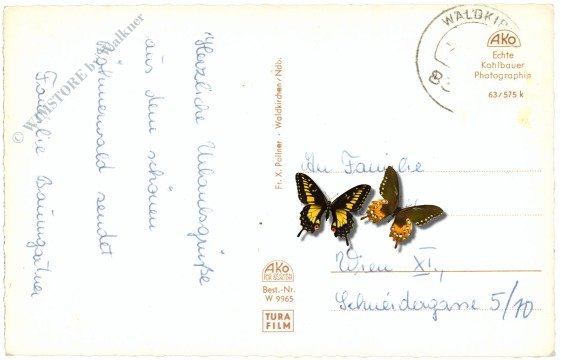 Herzliche Urlaubsgrüße
aus dem schönen
Böhmerwald sendet
Familie Baumgartner
© WIMSTORE by Walkner
Fr. X. Pollner · Waldkirchen/Ndb.
WALDKIR
8
AKO
Echte
Kohlbauer
Photographie
63/575 k
An Familie
Wien XI.,
Schneidergasse 5/10
AKO
Best.-Nr.
W 9965
TURA
FILM